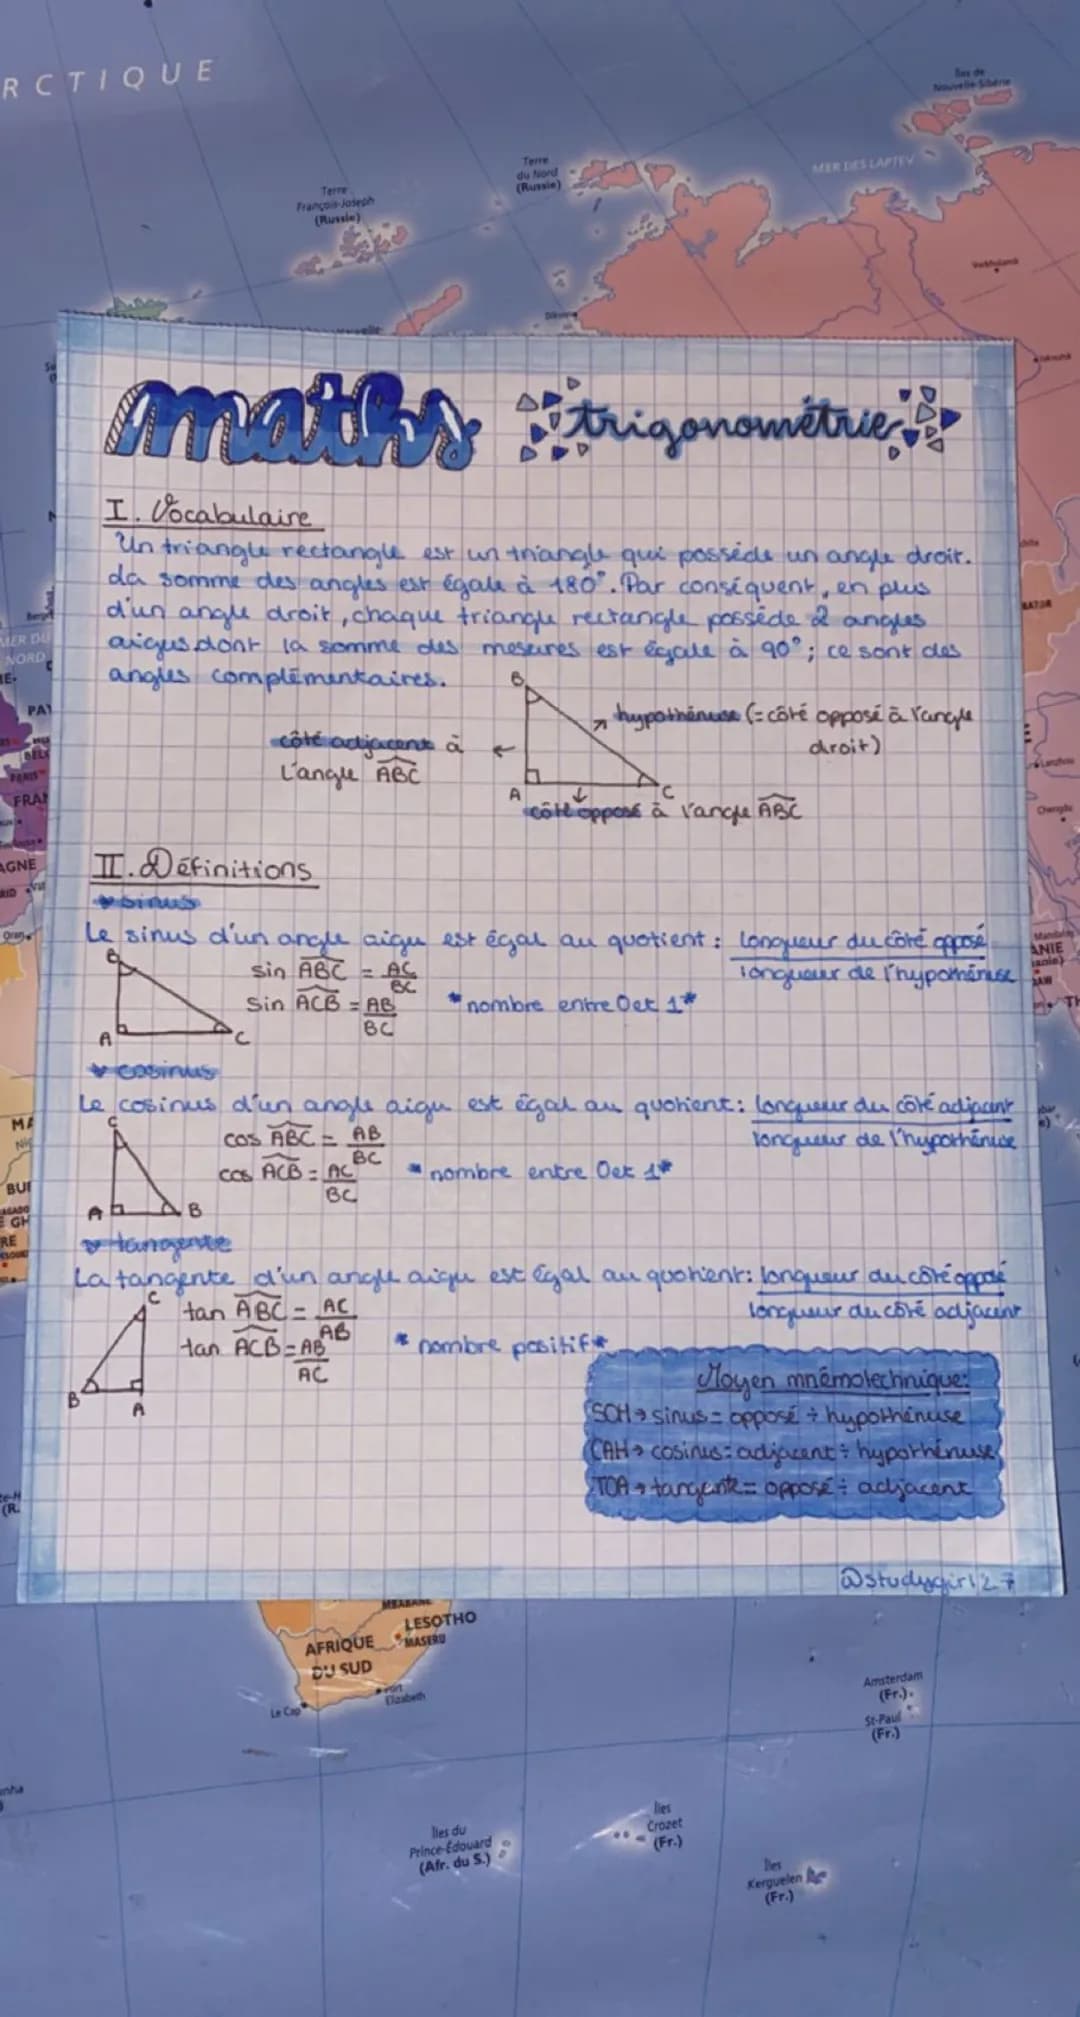 RCTIQUE
Îles de
Nouvelle-Sibérie
MER DES LAPTEV
Terre
du Nord
(Russie)
Terre
François-Joseph
(Russie)
maths trigonométrie
I. Vocabulaire
Un triangle rectangle est un triangle qui possède un angle droit.
La somme des angles est égale à 180°. Par conséquent, en plus
d'un angle droit, chaque triangle rectangle possède 2 angles
aigus dont la somme des mesures est égale à 90°; ce sont des
angles complémentaires.
B
hypothénuse (=côté opposé à l'angle
droit)
côté adjacent à
L'angle ABC
A C
côté opposé à l'angle ABC
II. Définitions
sinus
Le sinus d'un angle aigu est égal au quotient : longueur du côté opposé
longueur de l'hypothénuse
B
sin ABC = AC
BC
sin ACB = AB
BC
*nombre entre 0 et 1*
A C
cosinus
Le cosinus d'un angle aigu est égal au quotient: longueur du côté adjacent
longueur de l'hypothénuse
C
cos ABC = AB
BC
cos ACB = AC
BC
*nombre entre 0 et 1*
A B
tangente
La tangente d'un angle aigu est égal au quotient: longueur du côté opposé
longueur du côté adjacent
C
tan ABC = AC
AB
tan ACB = AB
AC
*nombre positif*
B A
Moyen mnémotechnique:
SOH → sinus = opposé ÷ hypothénuse
CAH → cosinus = adjacent ÷ hypothénuse
TOA → tangente = opposé ÷ adjacent
@studygirl27
MBABANE
LESOTHO
MASERU
AFRIQUE
DU SUD
Port
Elizabeth
Le Cap
Amsterdam
(Fr.)
St-Paul
(Fr.)
Îles
Crozet
(Fr.)
Îles du
Prince-Édouard
(Afr. du S.)
Îles
Kerguelen
(Fr.)